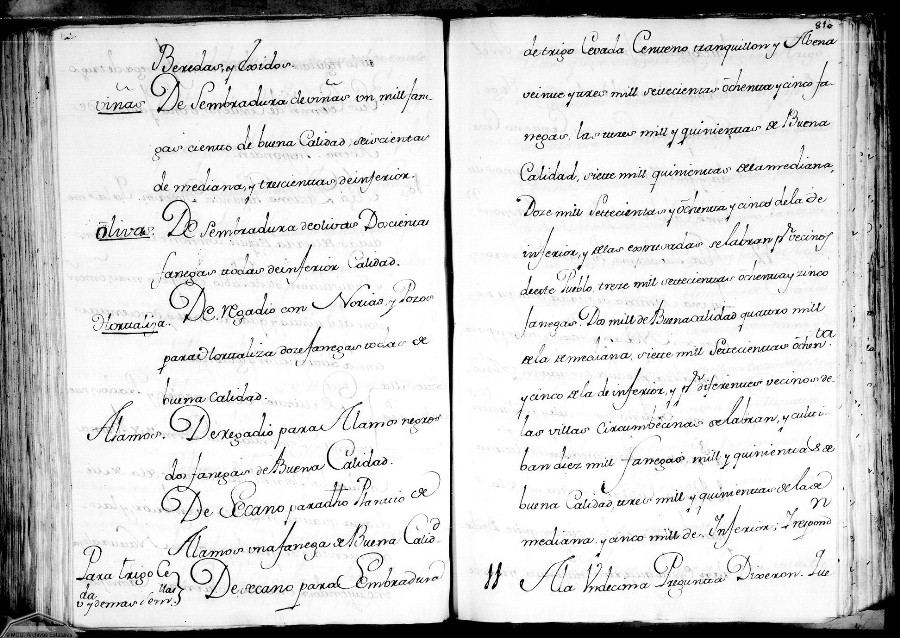 Beredas, y Exidos.
viñas De Sembradura de viñas vn mill fan-
gas ciento de buena Calidad, seiscientas
de mediana, y trescientas de inferior.
olivas. De Sembradura de olivas Doscientas
fanegas todas de inferior Calidad.
Hortaliza. De regadio con Norias, y Pozos
para Hortaliza doze fanegas todas de
buena Calidad.
Alamos. De regadio para Alamos negros
dos fanegas de Buena Calidad.
De Secano para dho Plantio de
Alamos vna fanega de Buena Calid.d
Para trigo Ce
da
y demas Sem.llas De secano para Sembradura
816
de trigo Cevada Centeno, tranquillon y Abena
veinte y tres mill settecientas ochenta y cinco fa-
negas, las tres mill y quinientas de Buena
Calidad, siette mill quinientas de la mediana,
Doze mill Settecientas y ochenta y cinco de la de
inferior, y de las expresadas se labran p.r vecinos
de este Pueblo, treze mil settecientas ochenta y cinco
fanegas. Dos mill de Buena calidad quattro mill
de la de mediana, siette mill Settecientas ochen.ta
y cinco de la de inferior, y p.r diferentes vecinos de
las villas Circumbecinas se labran, y culti-
ban diez mil fanegas, mill y quinientas de
buena Calidad, tres mill y quinientas de la de
mediana y cinco mill de Inferior, y respond.n
11 A la Undecima Pregunta Dixeron. Que